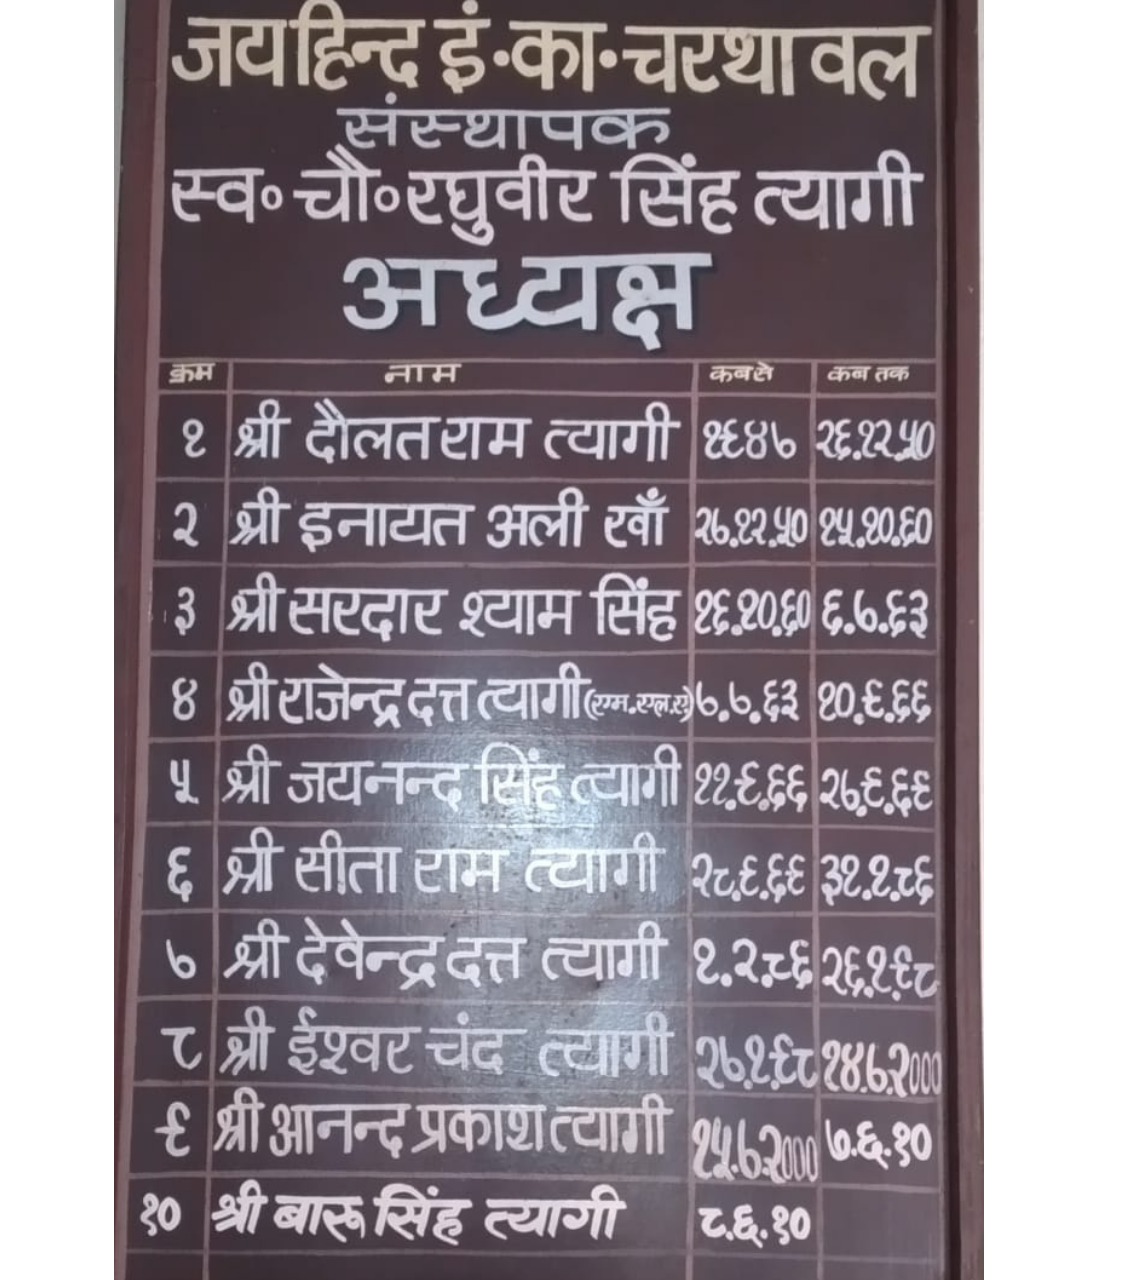 जयहिन्द इं॰का॰चरथावल
संस्थापक
स्व॰ चौ॰रघुवीर सिंह त्यागी
अध्यक्ष
क्रम नाम कबसे कब तक
१ श्री दौलत राम त्यागी १९४७ २६.१२.५०
२ श्री इनायत अली खाँ २७.१२.५० १५.१०.६०
३ श्री सरदार श्याम सिंह १६.१०.६० ६.७.६३
४ श्री राजेन्द्र दत्त त्यागी (एम.एल.ए) ७.७.६३ १०.९.६६
५ श्री जयनन्द सिंह त्यागी ११.९.६६ २७.९.६९
६ श्री सीता राम त्यागी २८.९.६९ ३१.१.८६
७ श्री देवेन्द्र दत्त त्यागी १.२.८६ २६.१.९८
८ श्री ईश्वर चंद त्यागी २७.१.९८ १४.७.२०००
९ श्री आनन्द प्रकाश त्यागी १५.७.२००० ७.६.१०
१० श्री बारू सिंह त्यागी ८.६.१०